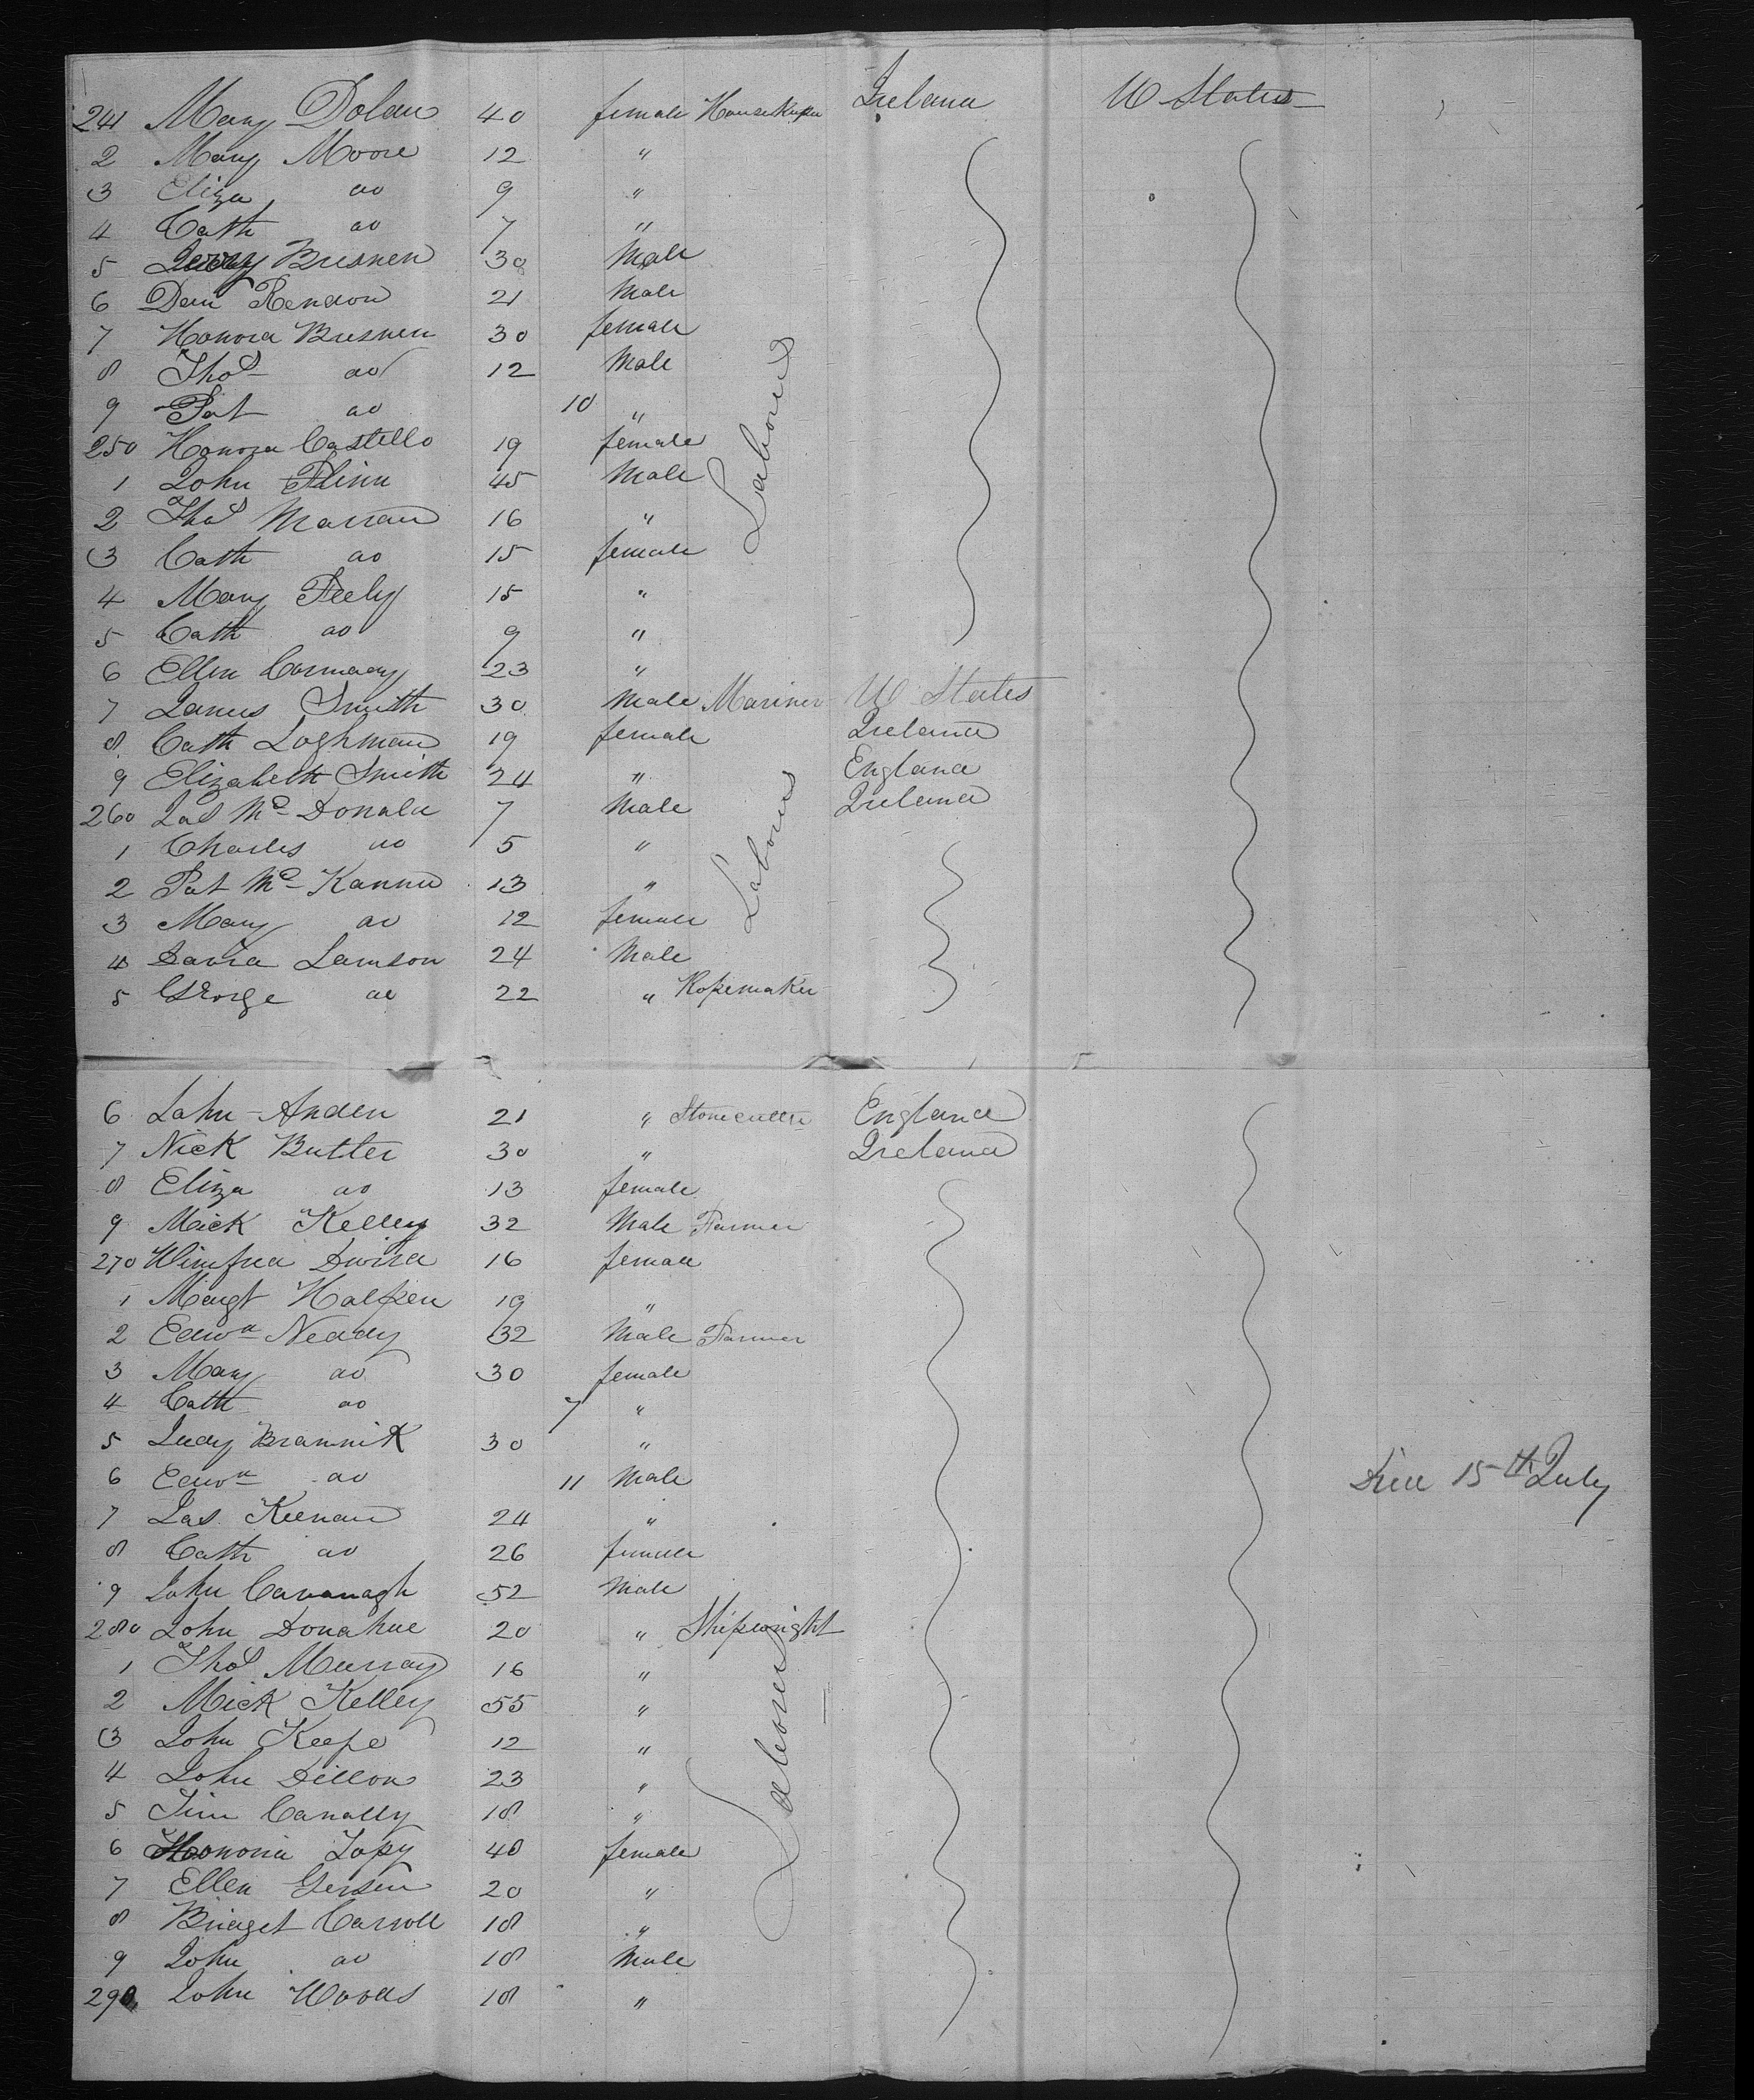 241 Mary Dolan 40 female Housekeeper Ireland U States
2 Mary Moore 12 "
3 Eliza do 9 "
4 Cath do 7 "
5 Jerry Bresnen 30 Male
6 Dan Reardon 21 Male
7 Honora Bresnen 30 female
8 Thos do 12 Male
9 Pat do 10 "
250 Honora Costello 19 female
1 John Flinn 45 Male
2 Thos Marran 16 "
3 Cath do 15 female
4 Mary Feely 15 "
5 Cath do 9 "
Labourers
6 Ellen Carmady 23 "
7 James Smith 30 Male Mariner U States
8 Cath Loghman 19 female Ireland
9 Elizabeth Smith 24 " England
260 Jas Mc Donald 7 Male Ireland
1 Charles do 5 "
2 Pat Mc Kanna 13 "
3 Mary do 12 female
Labourers
4 David Lamson 24 Male
5 George do 22 " Ropemaker
6 John Anden 21 " Stonecutter England
7 Nick Butler 30 " Ireland
8 Eliza do 13 female
9 Mick Kelley 32 Male Farmer
270 Winifred 16 female
1 Margt Halpen 19 "
2 Edwd Neady 32 Male Farmer
3 Mary do 30 female
4 Cath do 7 "
5 Judy Brannik 30 "
6 Edwd do 11 Male Died 15th July
7 Jas Keenan 24 "
8 Cath do 26 female
9 John Cavanagh 52 Male
280 John Donahue 20 " Shipwright
1 Thos Murray 16 "
2 Mick Kelley 55 "
3 John Keefe 12 "
4 John Dillon 23 "
5 Tim Canally 18 "
6 Honoria 40 female
7 Ellen 20 "
8 Bridget Carroll 18 "
Labourers
9 John do 18 Male
290 John Woods 18 "